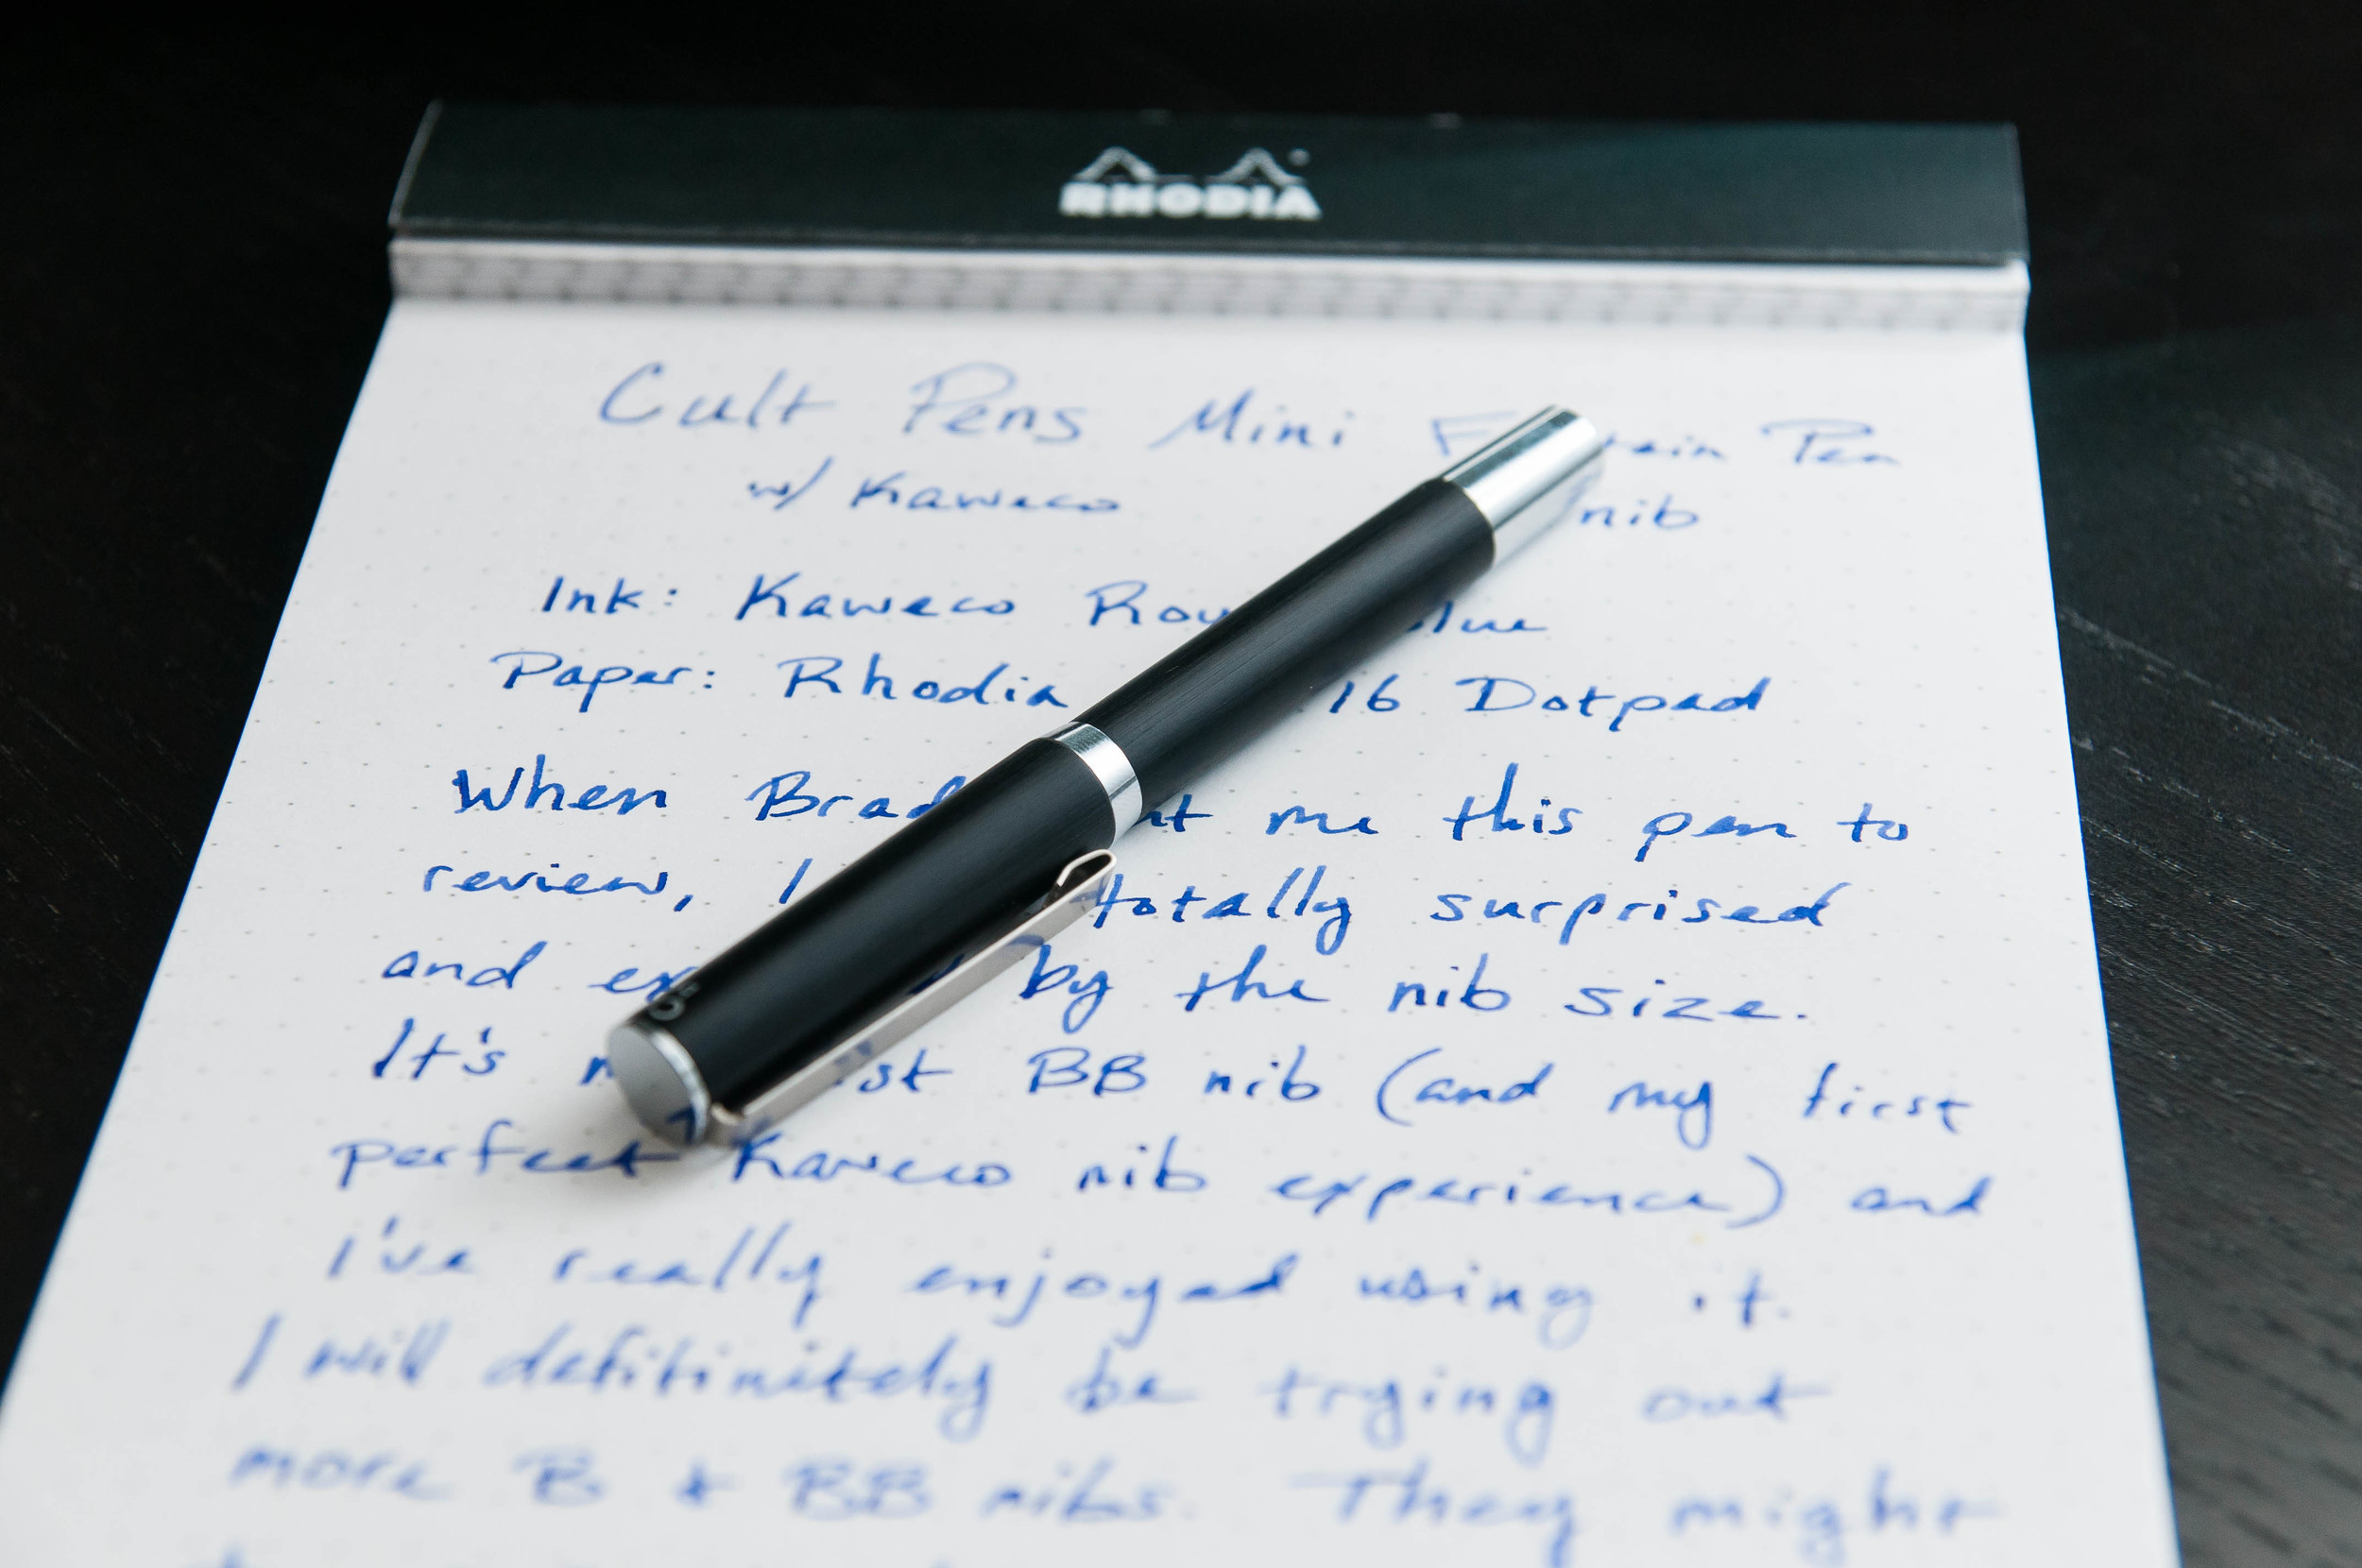 RHODIA
Cult Pens Mini Pen
w/ Kaweco nib
Ink: Kaweco
Paper: Rhodia 16 Dotpad
When Brad me this pen to
review, I totally surprised
and by the nib size.
It's BB nib (and my first
perfect Kaweco nib experience) and
I've really enjoyed using it.
I will defitinitely be trying out
more B & BB nibs. They might